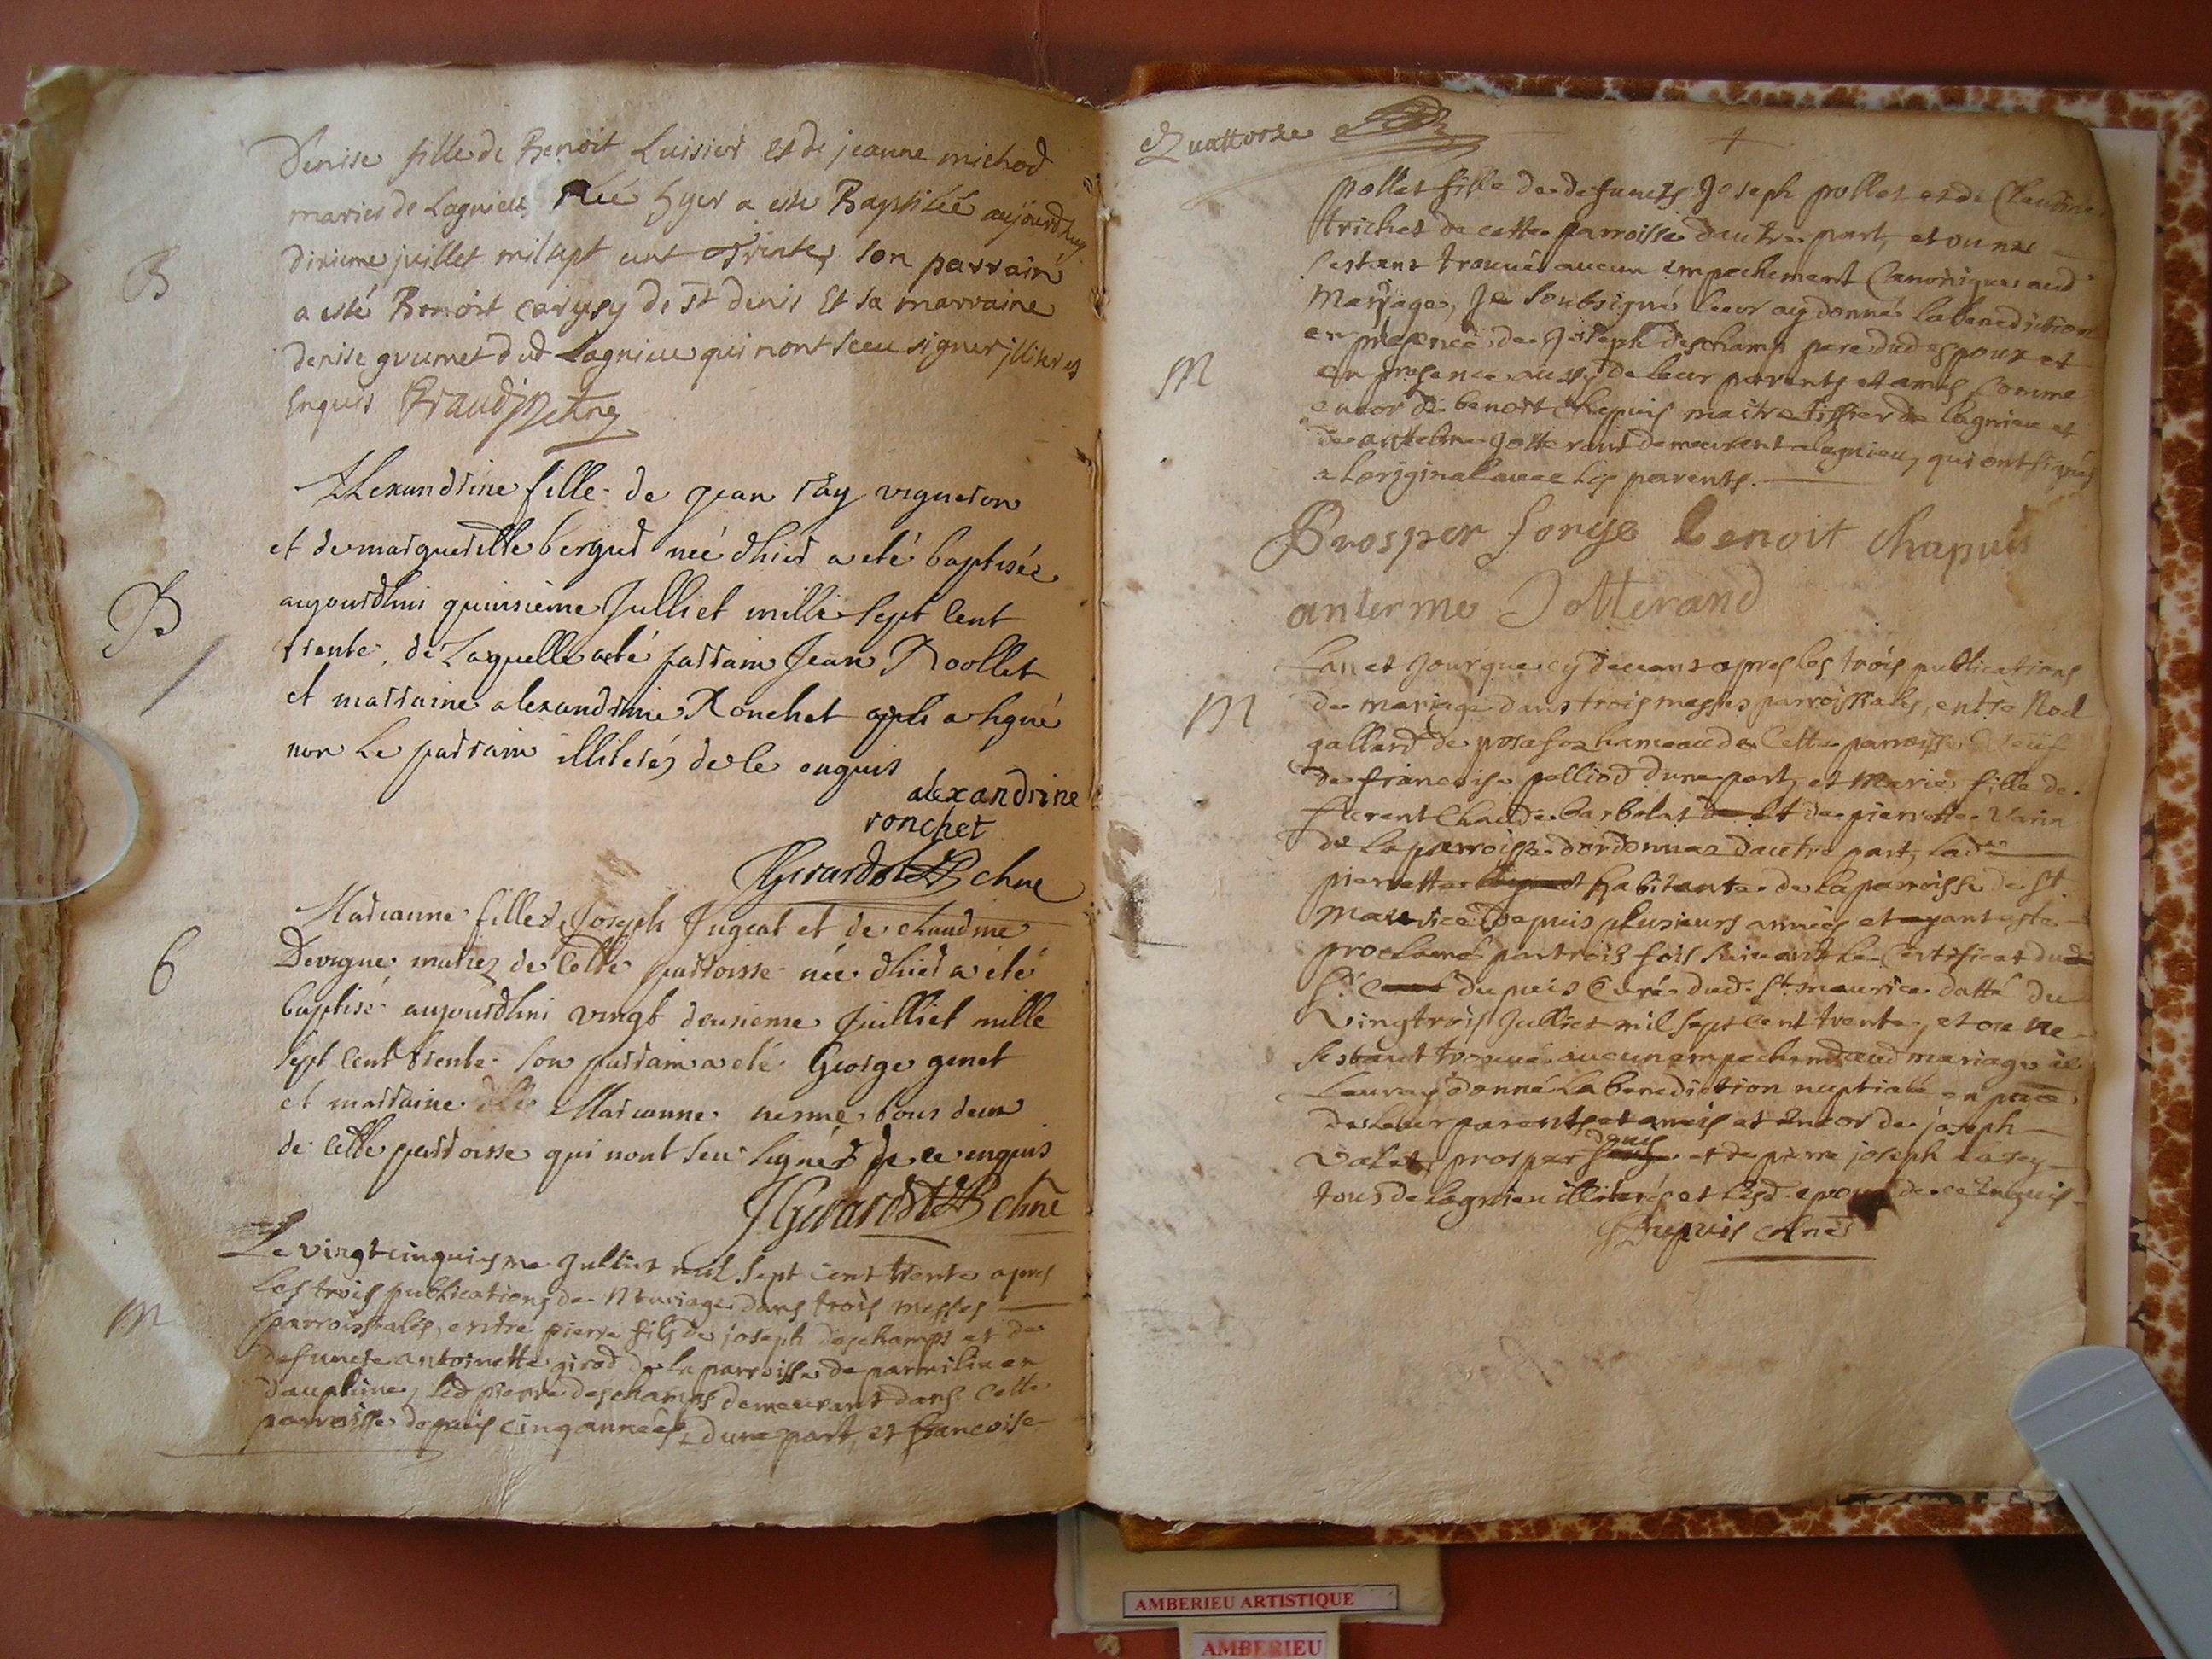 Denise fille de Benoit Luisier et de jeanne michod
maries de Lagnieu Née hyer a esté Baptisée aujourdhuy
dixieme juillet mil sept cent Trente, son parrain
a esté Benoit de st denis Et sa marraine
denise grumet dud Lagnieu qui nont sceu signer illiterés
Enquis
B
Alexandrine fille de jean ray vigneron
et de margueritte berger neé dhier a eté baptisée
aujourdhui quinsieme Julliet mille sept cent
trente, de Laquelle a eté parrain Jean Roollet
et marraine alexandrine Ronchet a signé
non le parrain illiteré de ce enquis
B
alexandrine
ronchet
Marianne fille de Joseph Jugeat et de claudine
Devigne mariez de cette parroisse née dhier a été
baptisé aujourdhui vingt deusieme Juilliet mille
sept cent trente son parrain a eté George genet
et marraine Marianne nerme tous deux
de cette parroisse qui nont seu signer de ce enquis
6
Le vingtcinquiesme Julliet mil sept cent trente apres
les trois publications de Mariage dans trois messes
parroissiales, entre pierre fils de joseph deschamps et de
defuncte antoinette girod de la parroisse de parmilieu en
dauphine, led pierre deschamps demeurant dans cette
parroisse depuis cinq années, dune part, et francoise
M
Quattorze
pollet fille de defuncts Joseph pollet et de Claudine
trichet de cette parroisse dautre part, et on ne
sestant trouué aucun empechement Canonique aud
Mariage, Je soubsigné leur ay donné la benediction
en presence de Joseph deschamps pere dud espoux et
en presence aussy de leur parents et amis, comme
encor de benoit Chapuis maitre tissier de lagnieu et
de antelme Jotterand demeurant a lagnieu, qui ont signés
a loriginal avec les parents.
M
Prosper sorge benoit chapuis
anterme Jotterand
Lan et Jour que cy deuant apres les trois publications
de mariage dans trois messes parroissiales, entre Noel
gallard de hameau de Cette parroisse
de francoise palliod dune part, et Marie fille de
florent Claude barbolat et de pierrette Varin
de la parroisse dordonnaz dautre part, lade
pierrette habitante de la parroisse de st
Maurice depuis plusieurs années et ayant esté
proclamé par trois fois suiuant le Certificat du
sr dupuis Curé dud. st. maurice datté du
Vingtrois Julliet mil sept cent trente, et on ne
sestant trouué aucun empechement aud mariage je
leur ay donné la benediction nuptiale en
de leur parents et amis et encor de joseph
Valet, prosper et de pierre joseph
tous de lagnieu illiterés et lesd. epoux de ce Enquis
Dupuis
M
AMBERIEU ARTISTIQUE
AMBERIEU